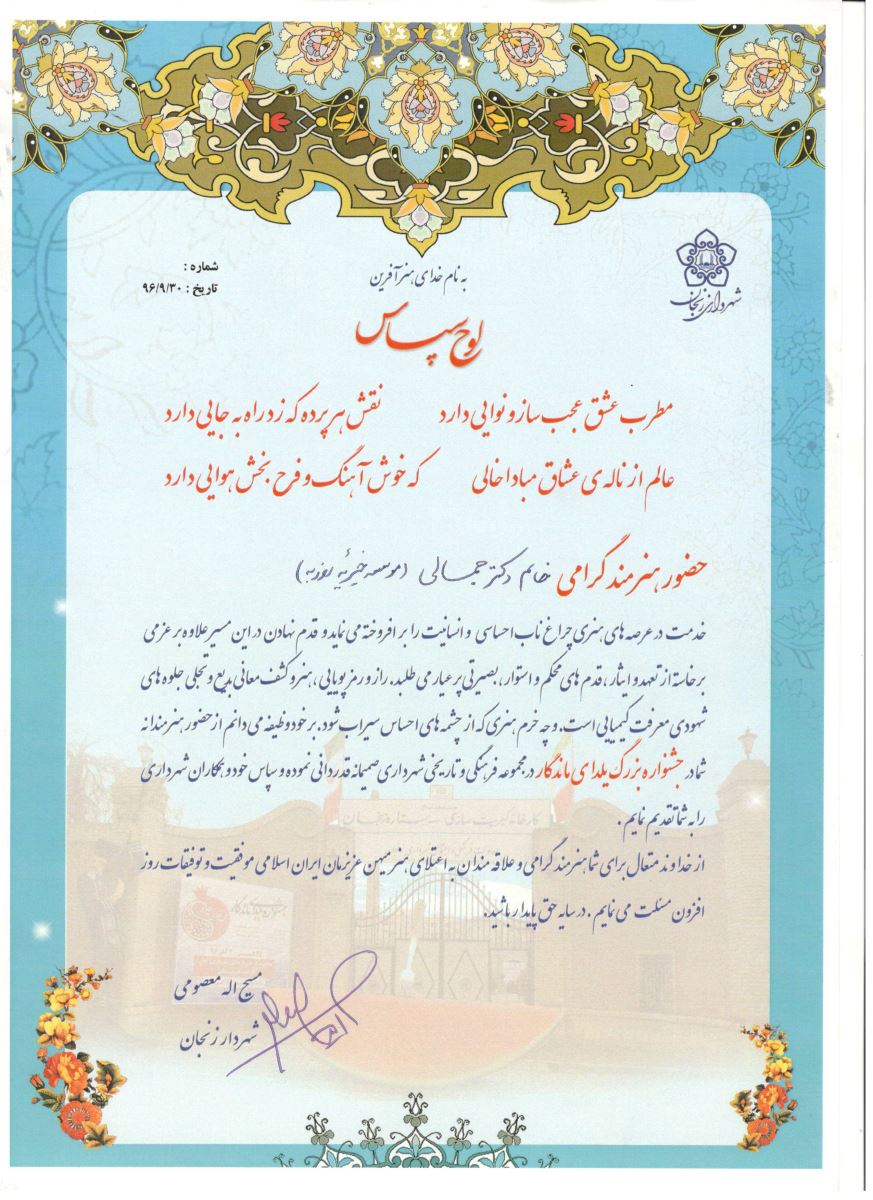 شهرداری زنجان
شماره :
تاریخ : ۹۶/۹/۳۰
به نام خدای هنرآفرین
لوح سپاس
مطرب عشق عجب ساز و نوایی دارد نقش هر پرده که زد راه به جایی دارد
عالم از ناله ی عشاق مبادا خالی که خوش آهنگ و فرح بخش هوایی دارد
حضور هنرمند گرامی خانم دکتر جمالی (موسسه خیریه روزبه)
خدمت در عرصه های هنری چراغ ناب احساسی و انسانیت را بر افروخته می نماید و قدم نهادن در این مسیر علاوه بر عزمی
برخاسته از تعهد و ایثار ، قدم های محکم و استوار ، بصیرتی پر عیار می طلبد. راز و رمز پویایی ، هنر و کشف معانی بدیع و تجلی جلوه های
شهودی معرفت کیمیایی است. و چه خرم هنری که از چشمه های احساس سیراب شود. بر خود وظیفه می دانم از حضور هنرمندانه
شما در جشنواره بزرگ یلدای ماندگار در مجموعه فرهنگی و تاریخی شهرداری صمیمانه قدردانی نموده و سپاس خود و همکاران شهرداری
را به شما تقدیم نمایم .
از خداوند متعال برای شما هنرمند گرامی و علاقه مندان به اعتلای هنر میهن عزیزمان ایران اسلامی موفقیت و توفیقات روز
افزون مسئلت می نمایم . در سایه حق پایدار باشید.
کارخانه کبریت سازی زنجان
مسیح اله معصومی
شهردار زنجان